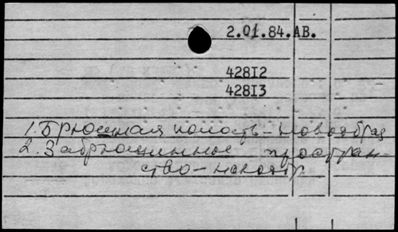 2.01.84.АВ.
42812
42813
1. Брюшная полость - Новообраз
2. Забрюшинное простран-
ство -